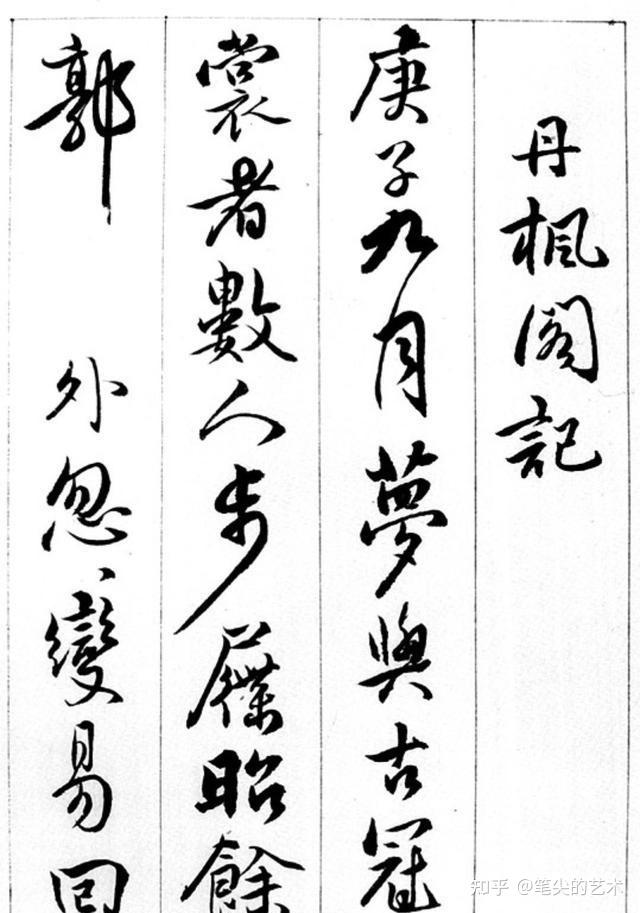 丹楓閣記
庚子九月夢與古冠
裳者數人步屧昭餘
郭 外忽變易回
知乎 @笔尖的艺术